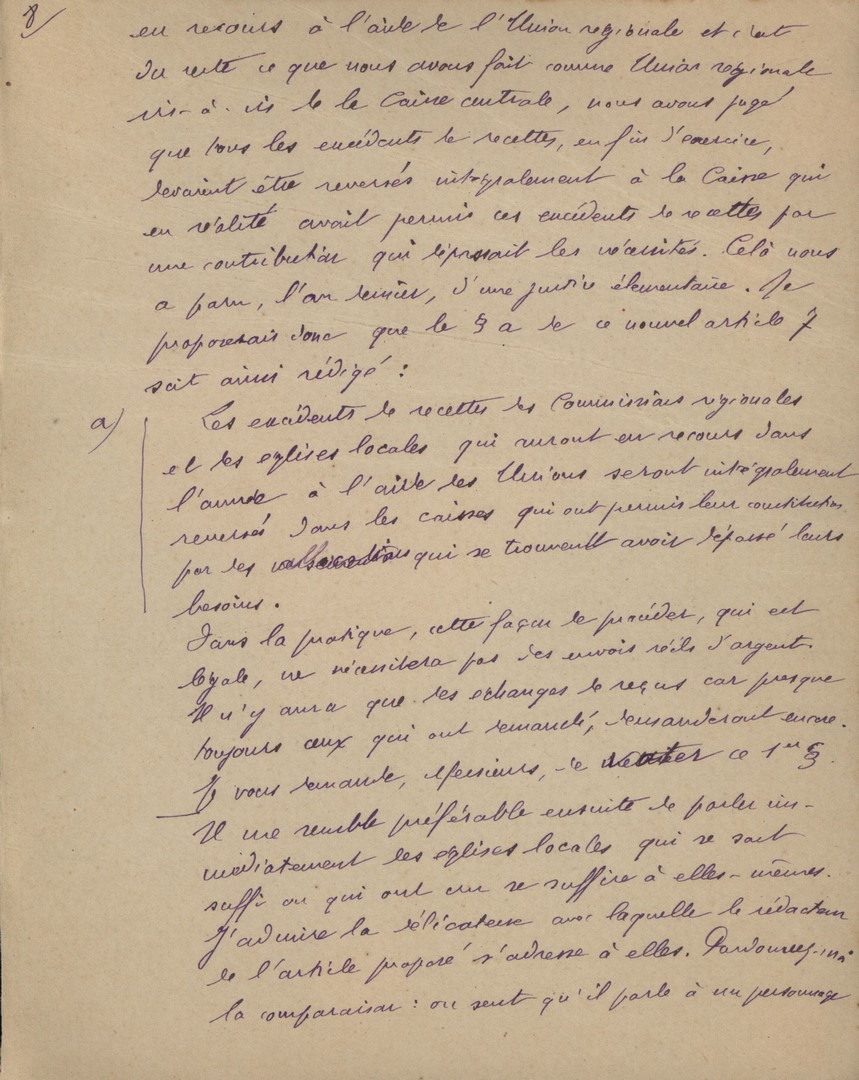 8
eu recours à l'aide de l'Union regionale et c'est
du reste ce que nous avons fait comme Union regionale
vis-à-vis de la Caisse centrale, nous avons jugé
que tous les excédents de recettes, en fin d'exercice,
devaient être reversés intégralement à la Caisse qui
en réalité avait permis ces excédents de recettes par
une contribution qui dépassait les nécessités. Celà nous
a paru, l'an dernier, d'une justice élémentaire. Je
proposerais donc que le § a de ce nouvel article 7
soit ainsi rédigé :
a) Les excédents de recettes des Commissions regionales
et des eglises locales qui auront eu recours dans
l'année à l'aide des Unions seront intégralement
reversés dans les caisses qui ont permis leur constitution
par des allocations qui se trouvent avoir dépassé leurs
besoins.
Dans la pratique, cette façon de procéder, qui est
légale, ne nécessitera pas des envois réels d'argent.
Il n'y aura que des echanges de reçus car presque
toujours ceux qui ont demandé, demanderont encore.
Je vous demande, Messieurs, de voter ce 1er §.
Il me semble préférable ensuite de parler im-
médiatement des eglises locales qui se sont
suffi ou qui ont cru se suffire à elles-mêmes.
J'admire la délicatesse avec laquelle le rédacteur
de l'article proposé s'adresse à elles. Pardonnez-moi
la comparaison : on sent qu'il parle à un personnage